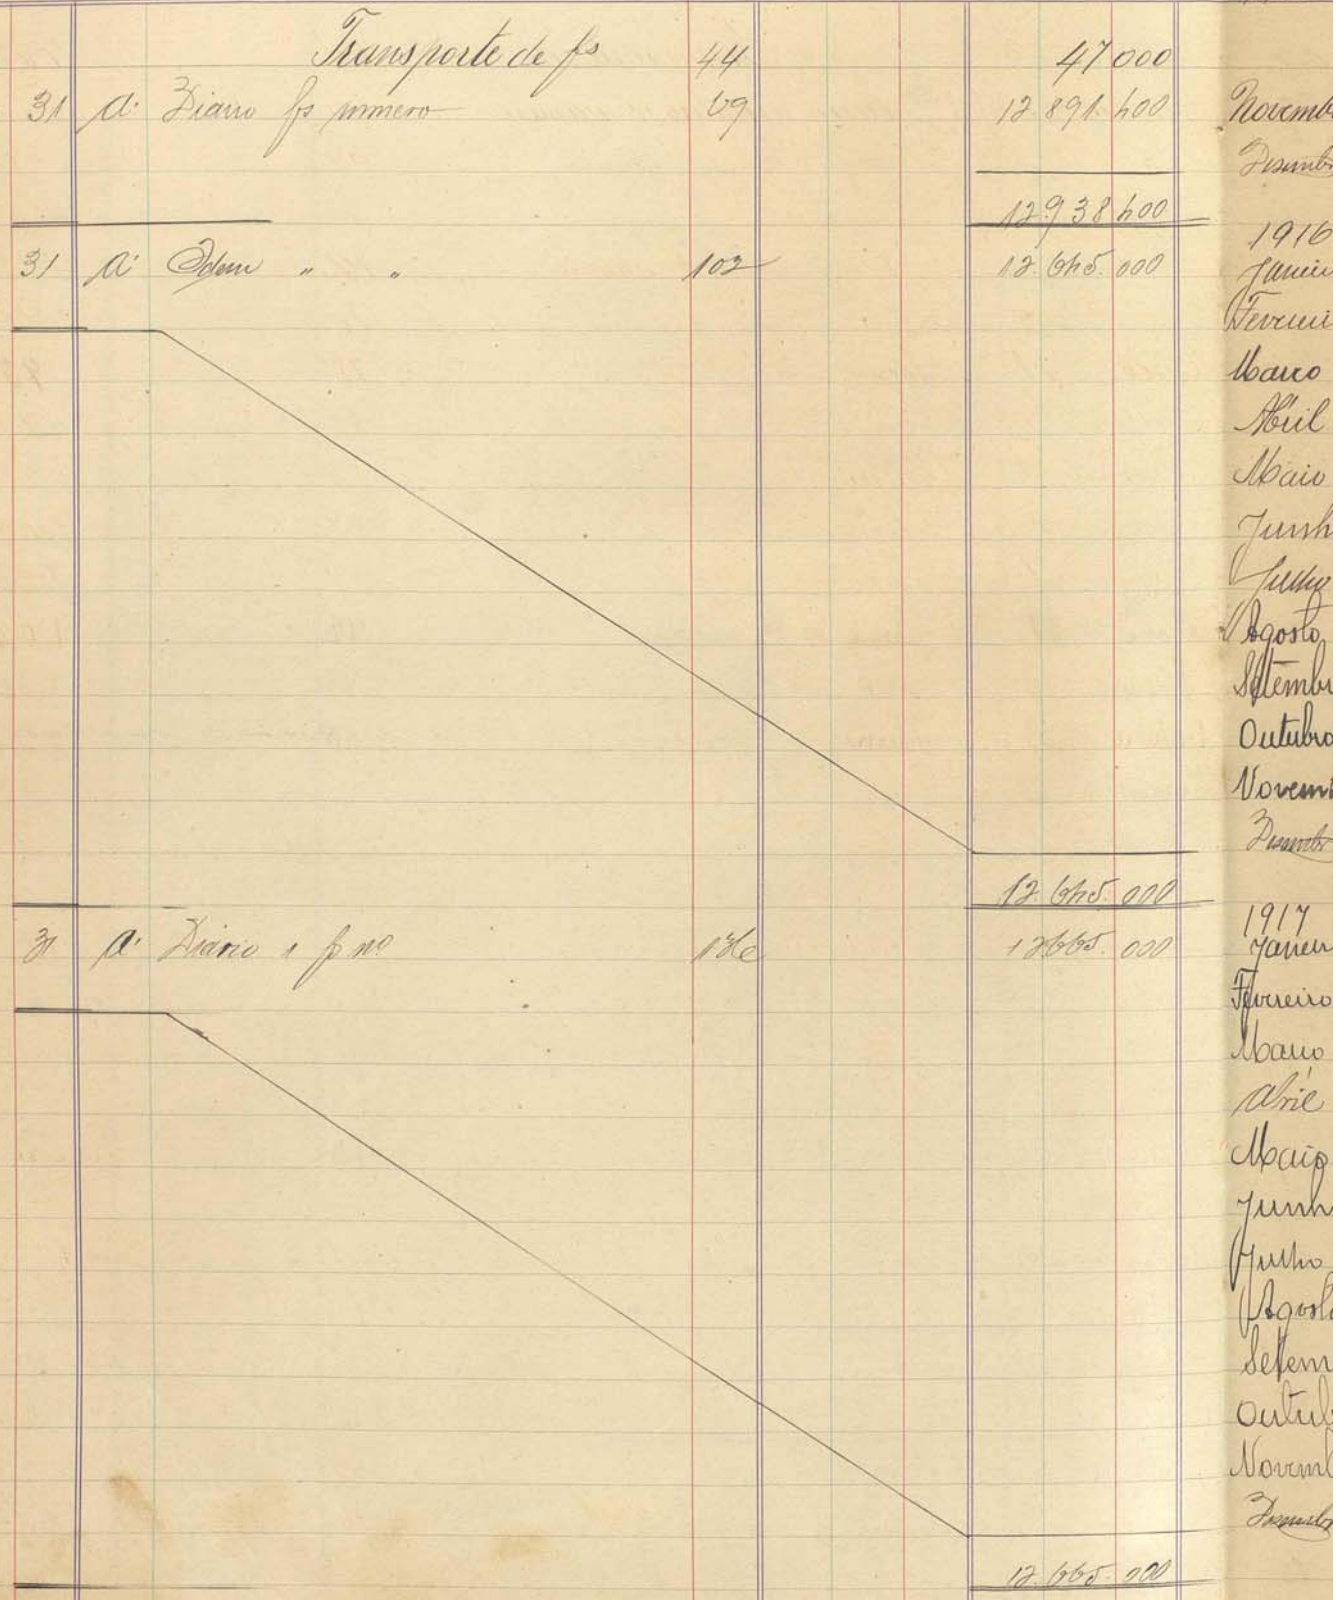 Transporte de fs 44 47 000
31 A' Diario fs numero 69 12 891. 400
12.938 400
31 A' Idem " " 102 12. 645. 000
12. 645. 000
31 A' Diário " fs nº 12 665. 000
12. 665. 000
Novemb
Desembr
1916
Janeir
Feverei
Março
Abril
Maio
Junh
Julho
Agosto
Setembr
Outubro
Novem
Desembr
1917
Janeir
Fevereiro
Março
Abril
Maio
Junh
Julho
Agosto
Setem
Outub
Novemb
Desembr